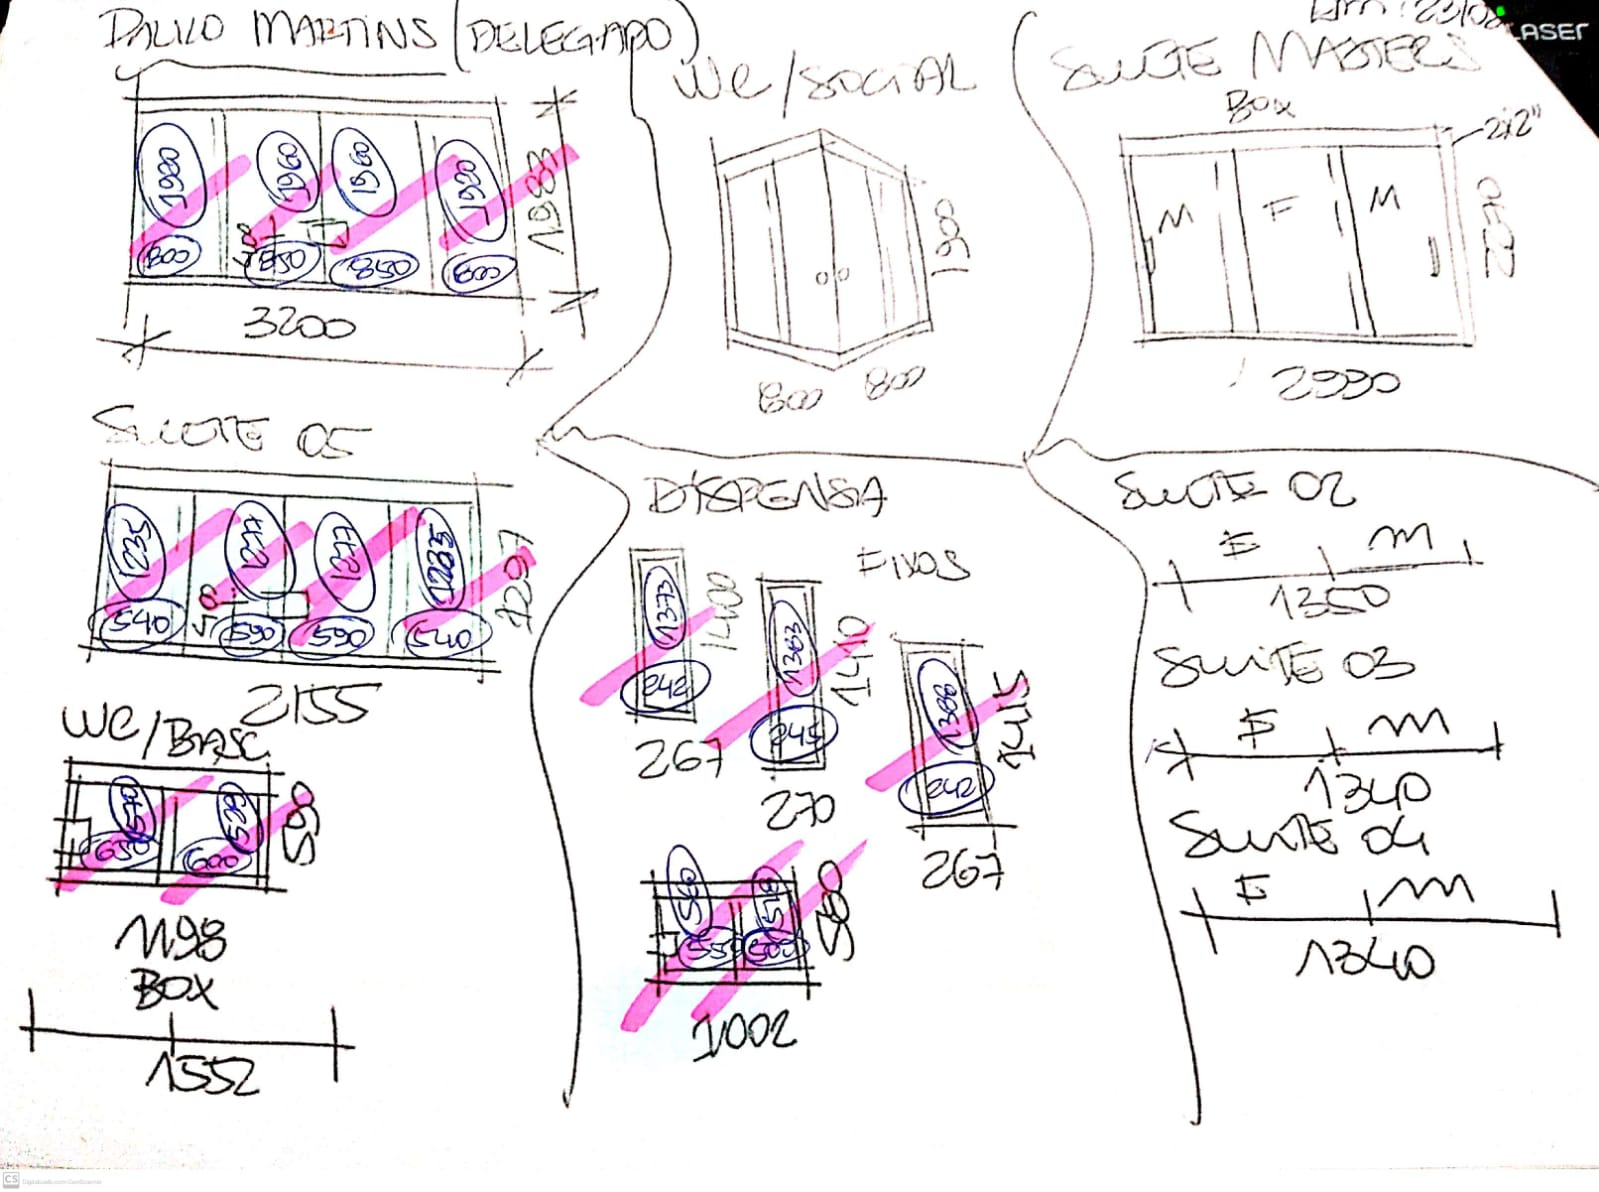 PAULO MARTINS (DELEGADO)
1920 1960 1960 1920
800 850 850 800
1983
3200
WC/SOCIAL
1900
800 800
SUITE MASTERS
BOX
2x2"
M F M
2230
2990
LASER
SUITE 05
1235 1277 1277 1235
540 590 590 540
1297
2155
DISPENSA
FIXOS
1373 1400
242
267
1383 1410
245
270
1388 1415
242
267
WC/BASC
570 529
650 600
590
1198
BOX
1552
560 519
555 500
580
1002
SUITE 02
F M
1350
SUITE 03
F M
1340
SUITE 04
F M
1340
CS